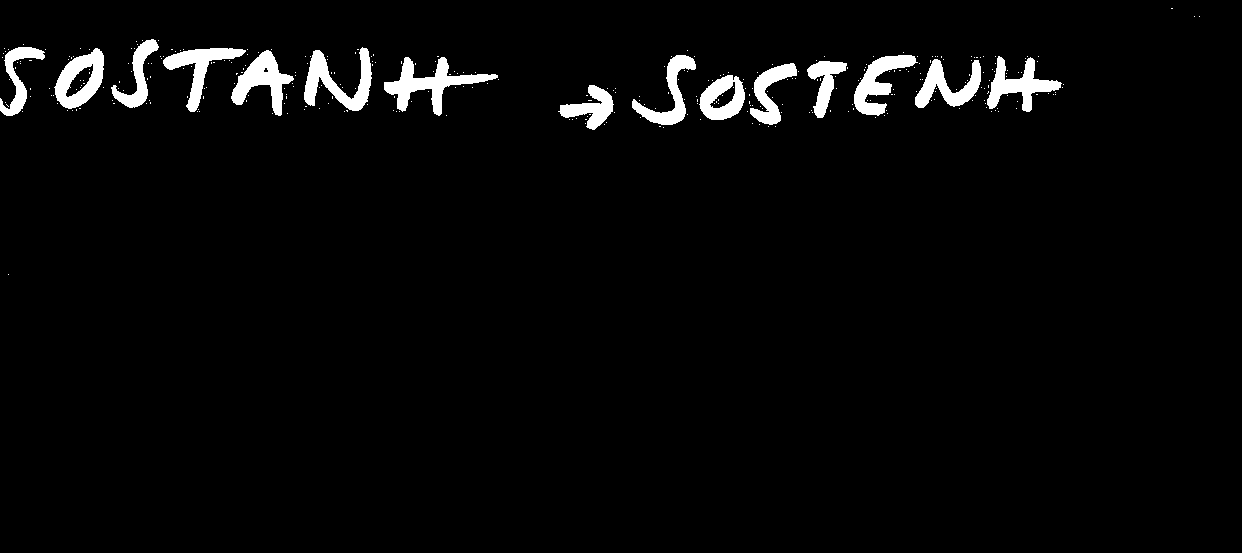 SOSTANH → SOSTENH